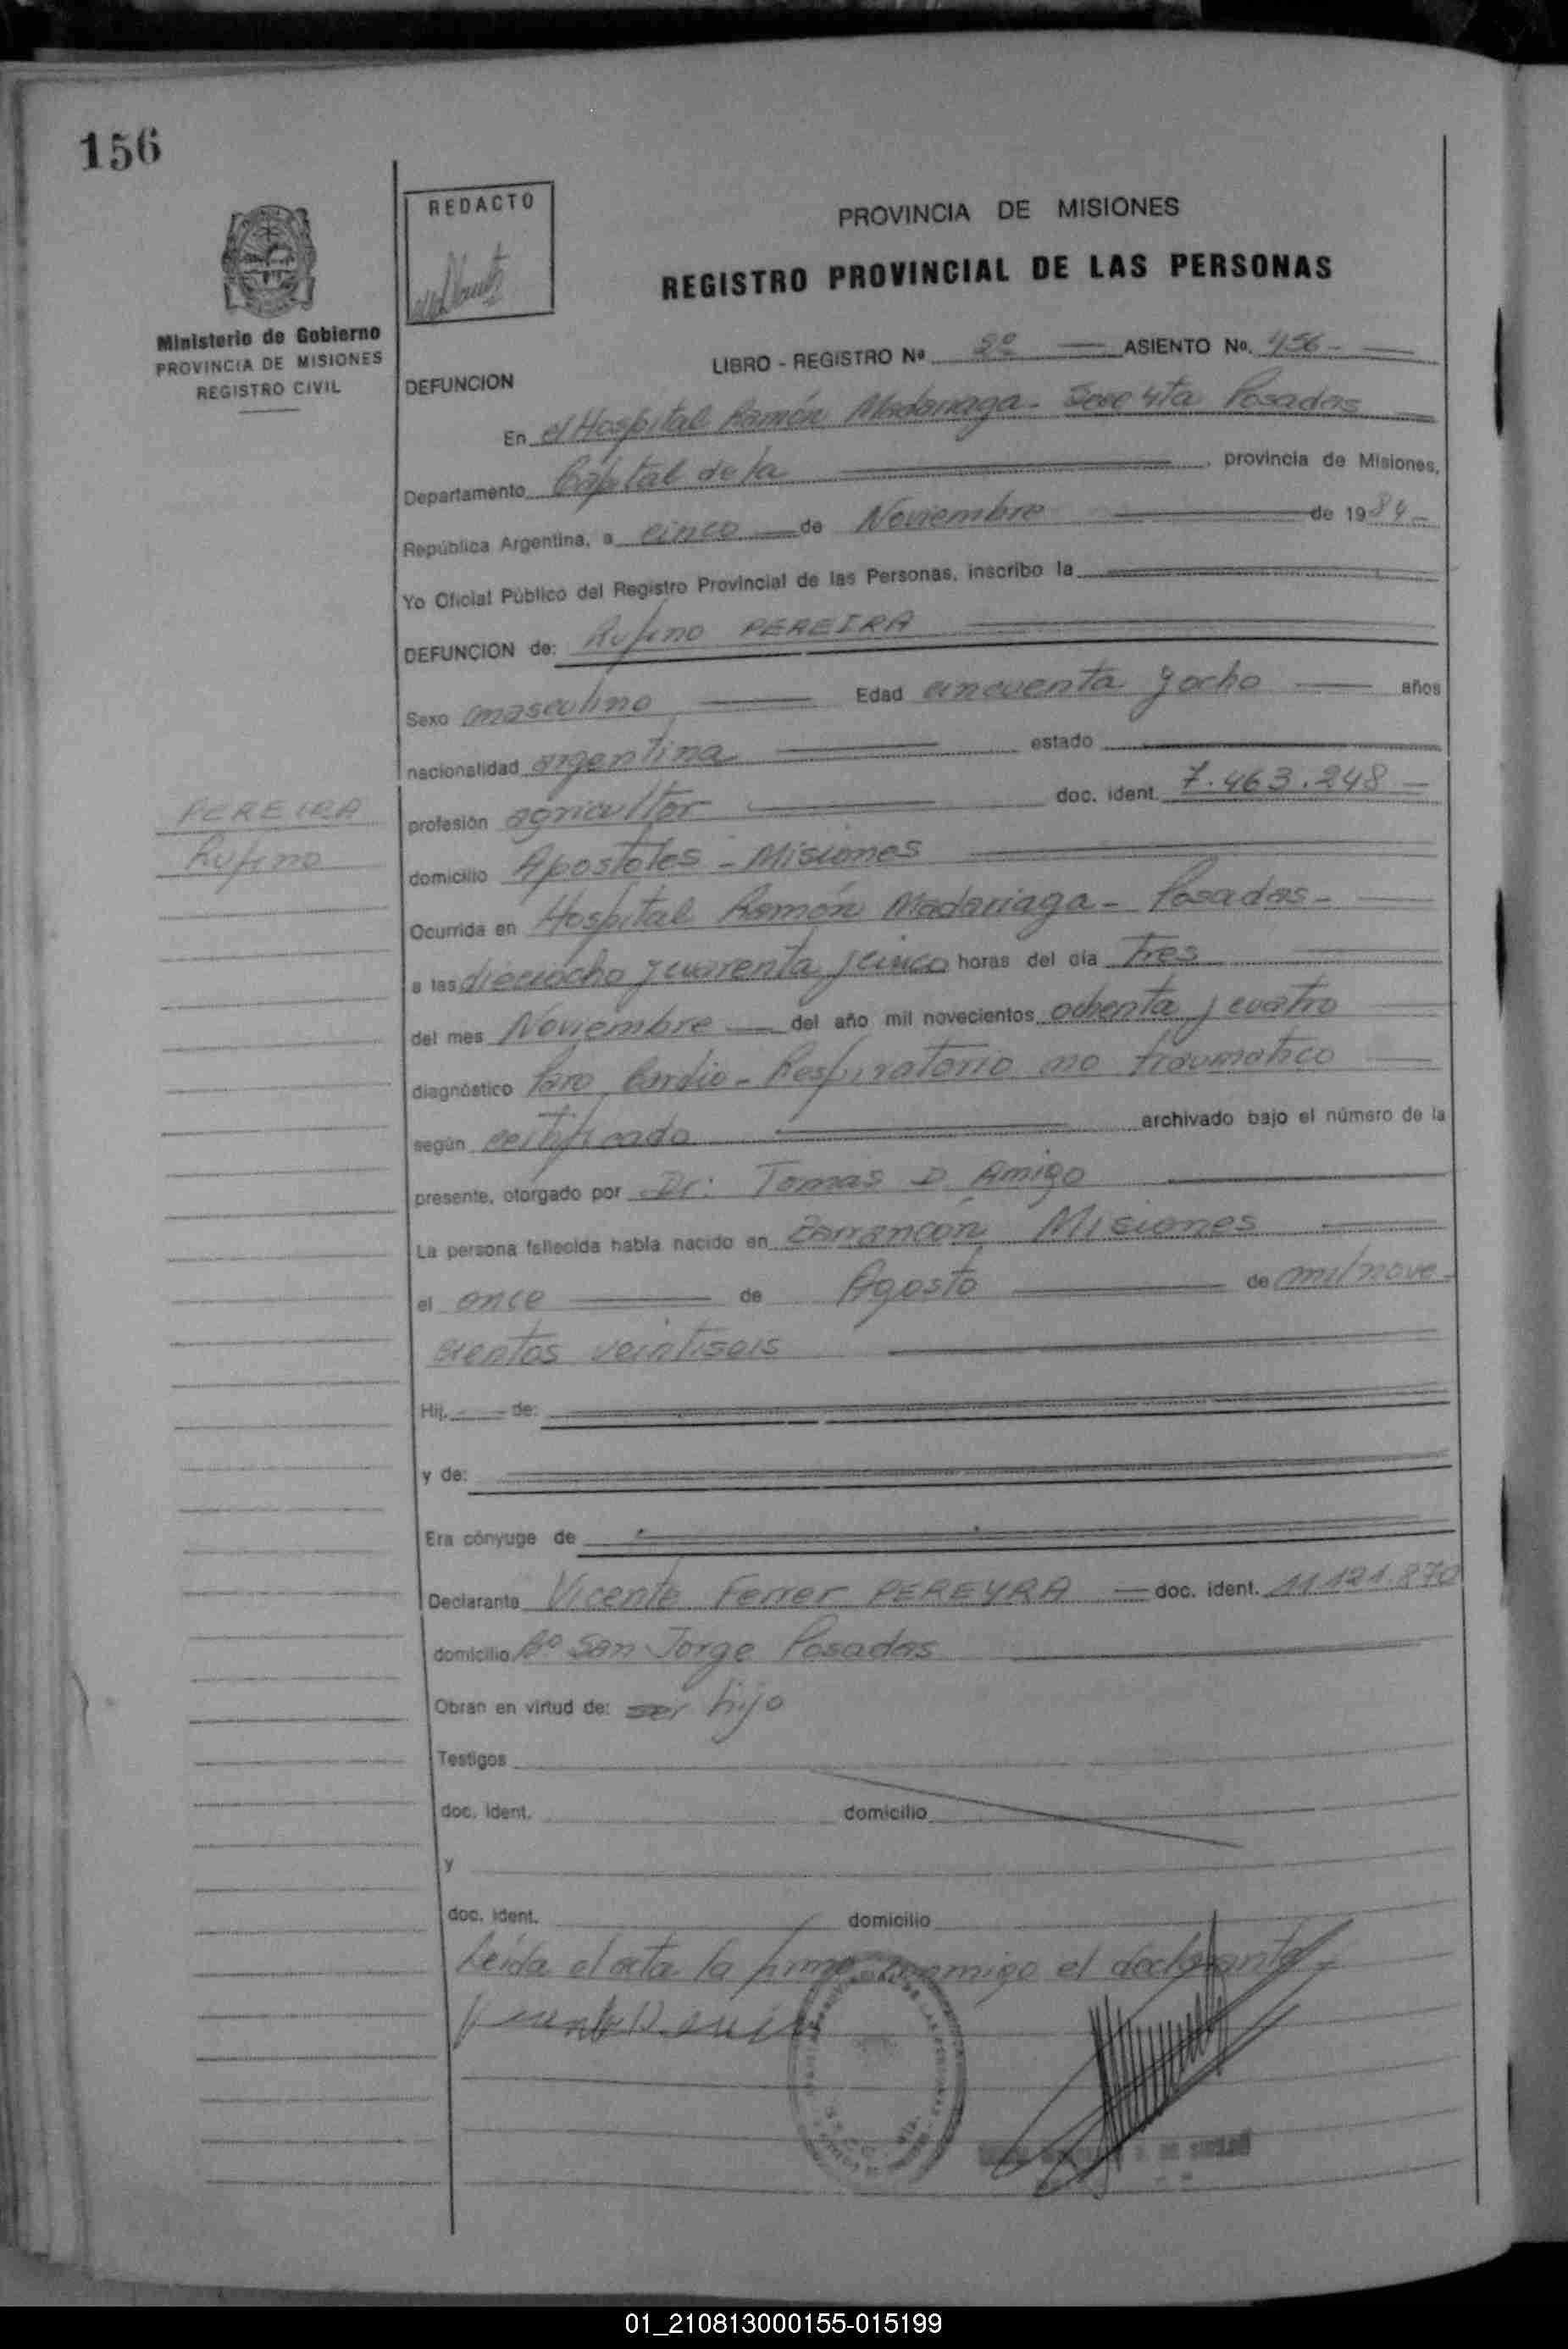 156
REDACTO
Ministerio de Gobierno
PROVINCIA DE MISIONES
REGISTRO CIVIL
PROVINCIA DE MISIONES
REGISTRO PROVINCIAL DE LAS PERSONAS
LIBRO - REGISTRO Nº 2º ASIENTO Nº. 456-
DEFUNCION
En el Hospital Ramón Madariaga - Secc 4ta Posadas
Departamento Capital de la , provincia de Misiones,
República Argentina, a cinco de Noviembre de 1984-
Yo Oficial Público del Registro Provincial de las Personas, inscribo la
DEFUNCION de: Rufino PEREIRA
Sexo masculino Edad cincuenta y ocho años
nacionalidad argentina estado
profesión agricultor doc. ident. 7.463.248-
PEREIRA
Rufino
domicilio Apostoles - Misiones
Ocurrida en Hospital Ramón Madariaga - Posadas-
a las dieciocho y cuarenta y cinco horas del día Tres
del mes Noviembre del año mil novecientos ochenta y cuatro
diagnóstico Paro Cardio - Respiratorio no traumatico
según certificado archivado bajo el número de la
presente, otorgado por Dr: Tomas D. Amigo
La persona fallecida había nacido en Misiones
el once de Agosto de mil nove-
cientos veintiseis
Hij. de:
y de:
Era cónyuge de
Declarante Vicente Ferrer PEREYRA doc. ident. 11.121.870
domicilio Bº San Jorge Posadas
Obran en virtud de: ser hijo
Testigos
doc. ident. domicilio
y
doc. ident. domicilio
Leida el acta la firma conmigo el declarante-
01_210813000155-015199